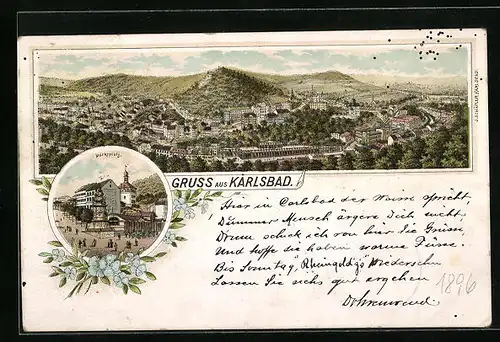 Marktplatz.
GRUSS AUS KARLSBAD.
Hier in Carlsbad der Weise spricht,
Dummer Mensch ärgere Dich nicht,
Drum schick ich von hier die Grüsse,
Und hoffe Sie haben warme Füsse.
Bis Sonntag "Rheingold" Wiedersehn
Lassen Sie sichs gut ergehen
1896